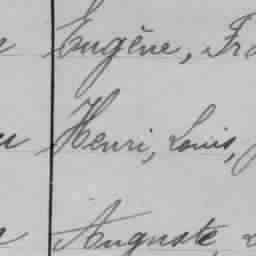 Eugène, Fra
Henri, Louis,
Auguste,